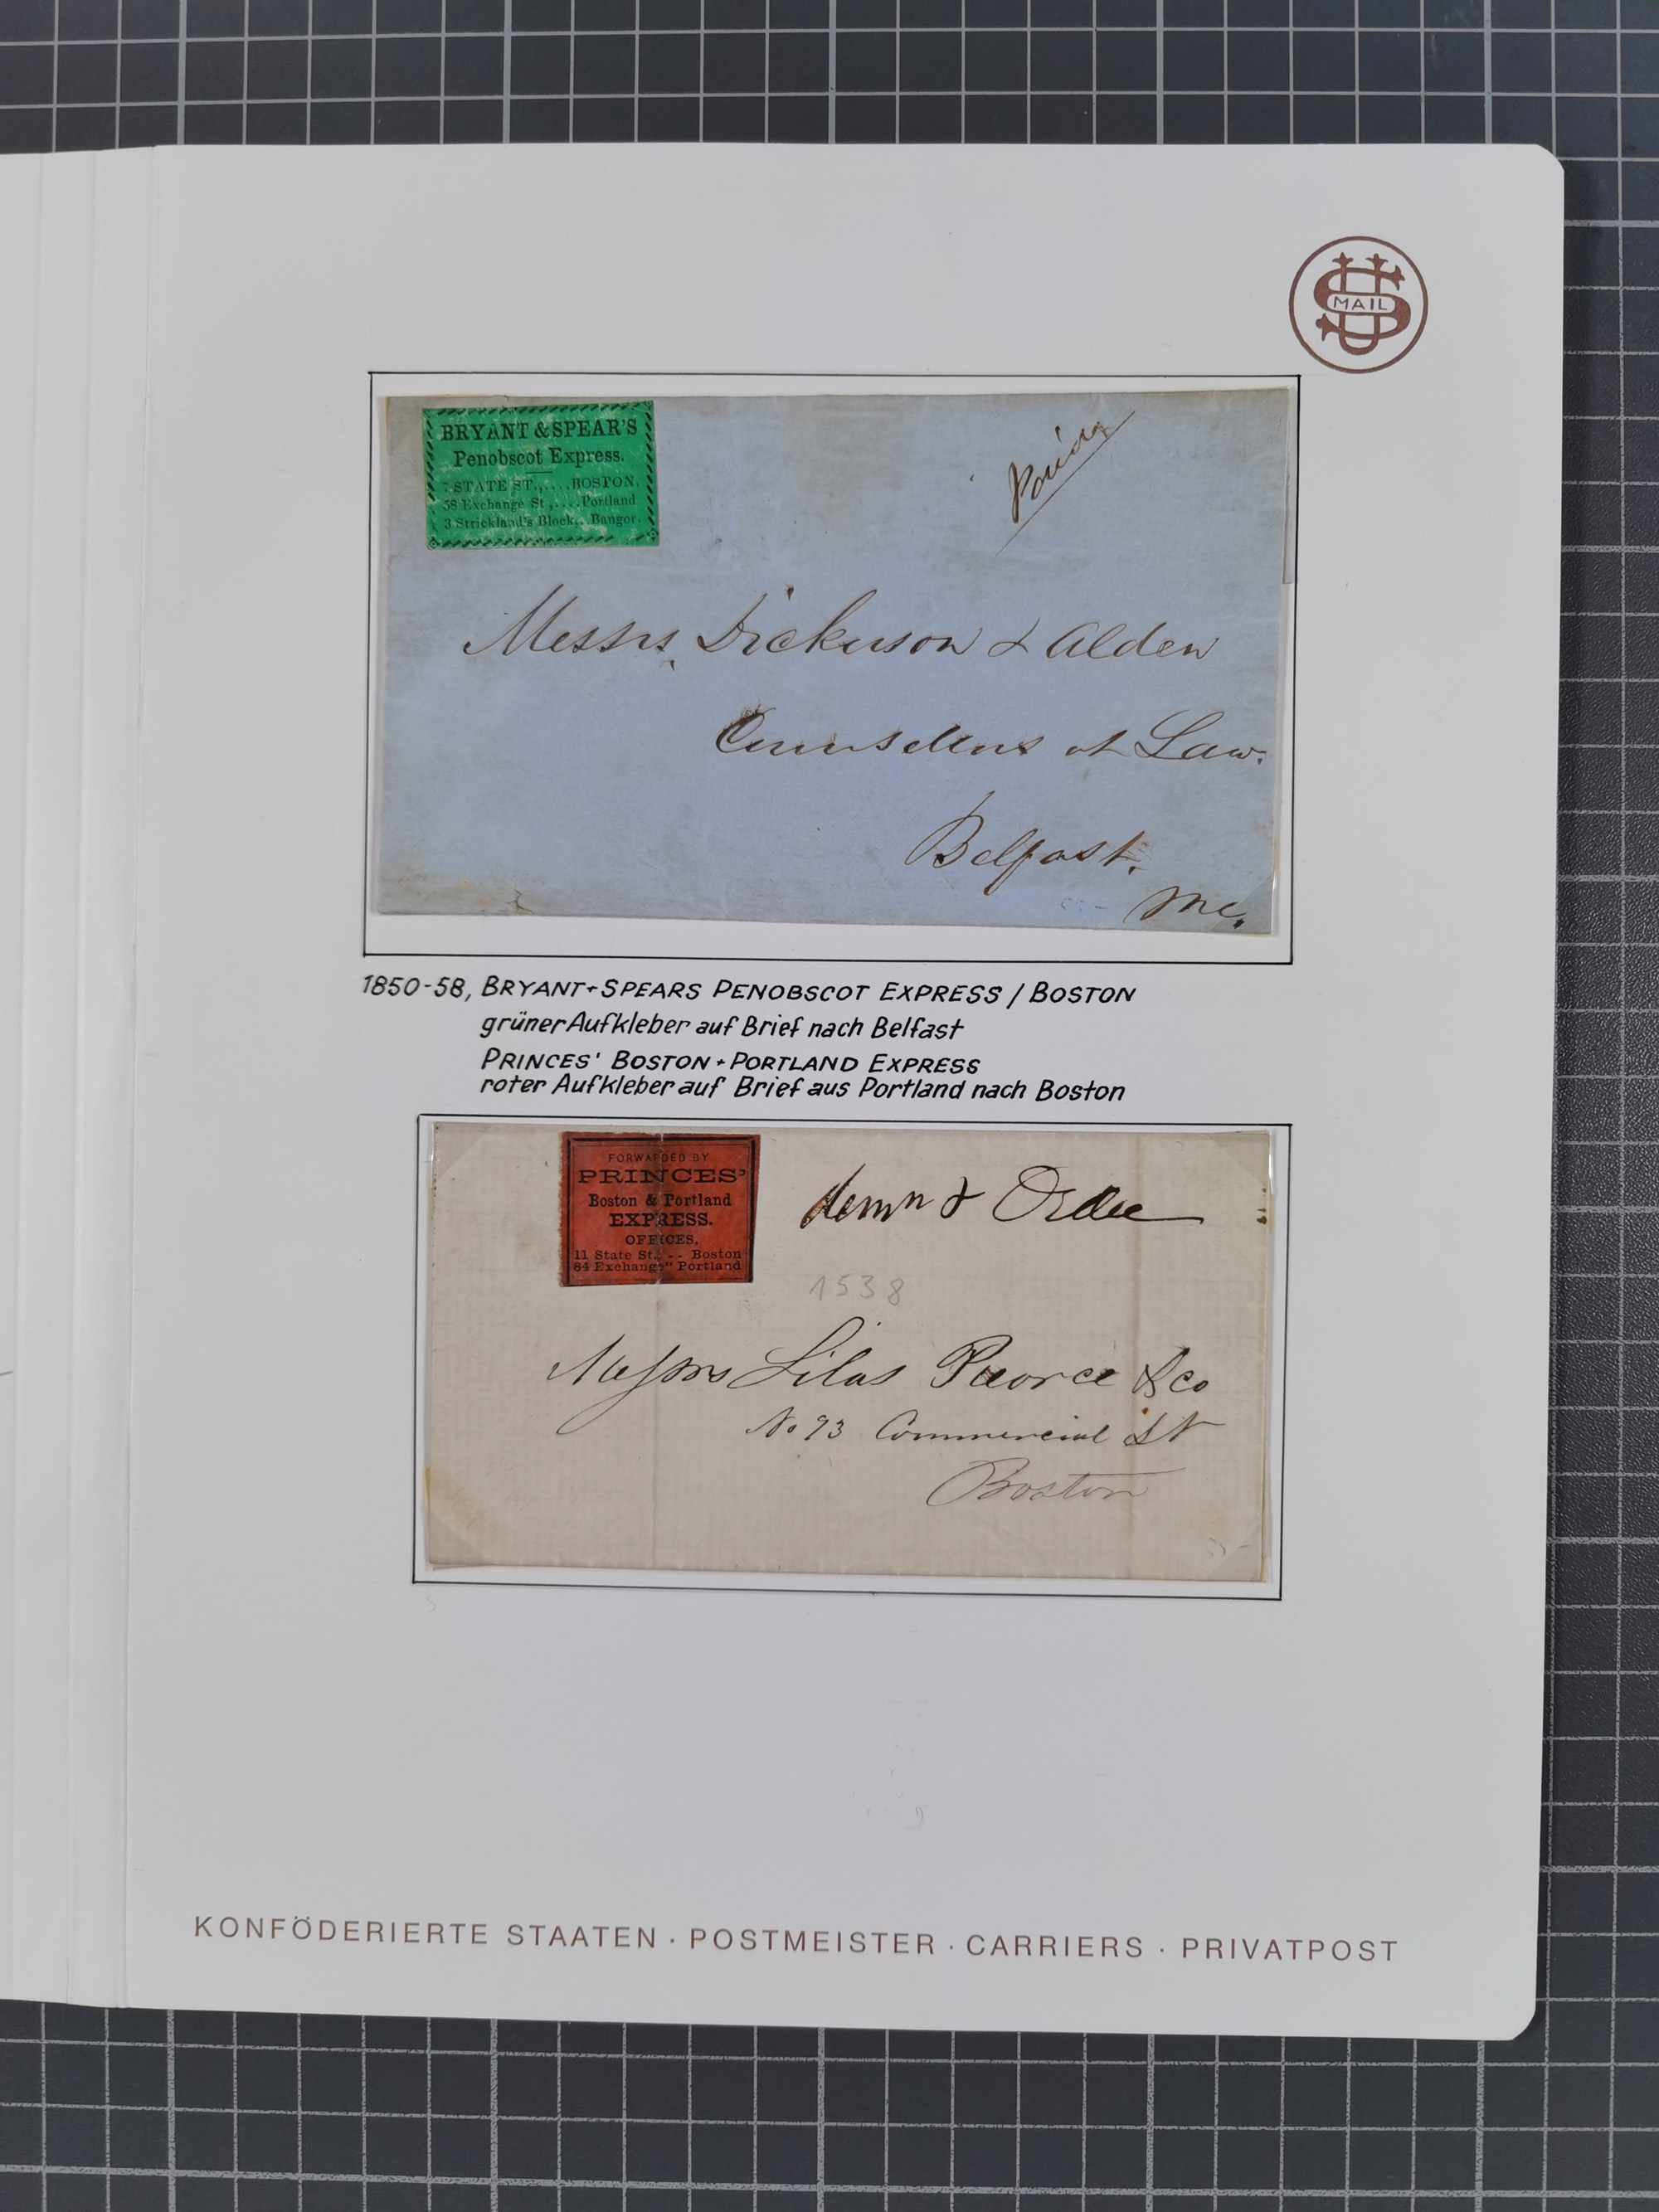 US MAIL
BRYANT & SPEAR'S
Penobscot Express.
STATE ST.,....BOSTON.
58 Exchange St,....Portland
3 Strickland's Block...Bangor.
Messrs. Dickerson & Alden
Counsellors at Law.
Belfast.
Me.
1850-58, BRYANT+SPEARS PENOBSCOT EXPRESS / BOSTON
grüner Aufkleber auf Brief nach Belfast
PRINCES' BOSTON + PORTLAND EXPRESS
roter Aufkleber auf Brief aus Portland nach Boston
FORWARDED BY
PRINCES'
Boston & Portland
EXPRESS.
OFFICES,
11 State St. -- Boston
84 Exchange " Portland
& Order
1538
Messrs Silas Peirce & Co
No 93 Commercial St
Boston
KONFÖDERIERTE STAATEN · POSTMEISTER · CARRIERS · PRIVATPOST